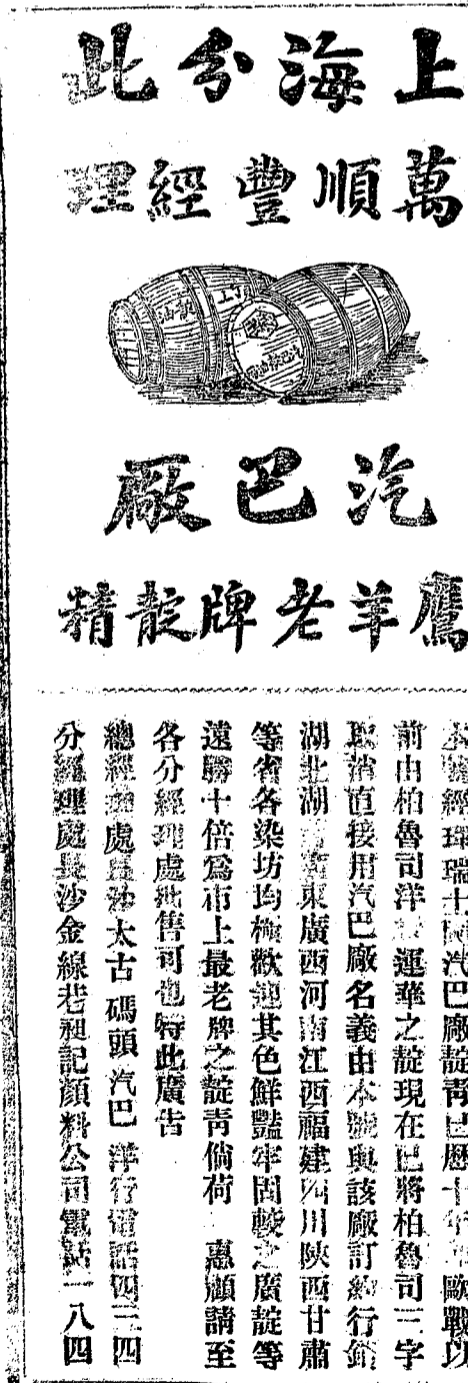 上海分此
萬順豐經理
靛油
汽巴廠
鷹羊老牌靛精
本號經理瑞士國汽巴廠靛青已歷十年歐戰以
前由柏魯司洋運華之靛現在已將柏魯司三字
取消直接用汽巴廠名義由本號與該廠訂約行銷
湖北湖東廣西河南江西福建四川陝西甘肅
等省各染坊均極歡迎其色鮮豔牢固較之廣靛等
遠勝十倍爲市上最老牌之靛青倘荷 惠顧請至
各分經理處批售可也特此廣告
總經理處長沙太古碼頭汽巴洋行電話四三四
分經理處長沙金線巷昶記顏料公司電話一八四